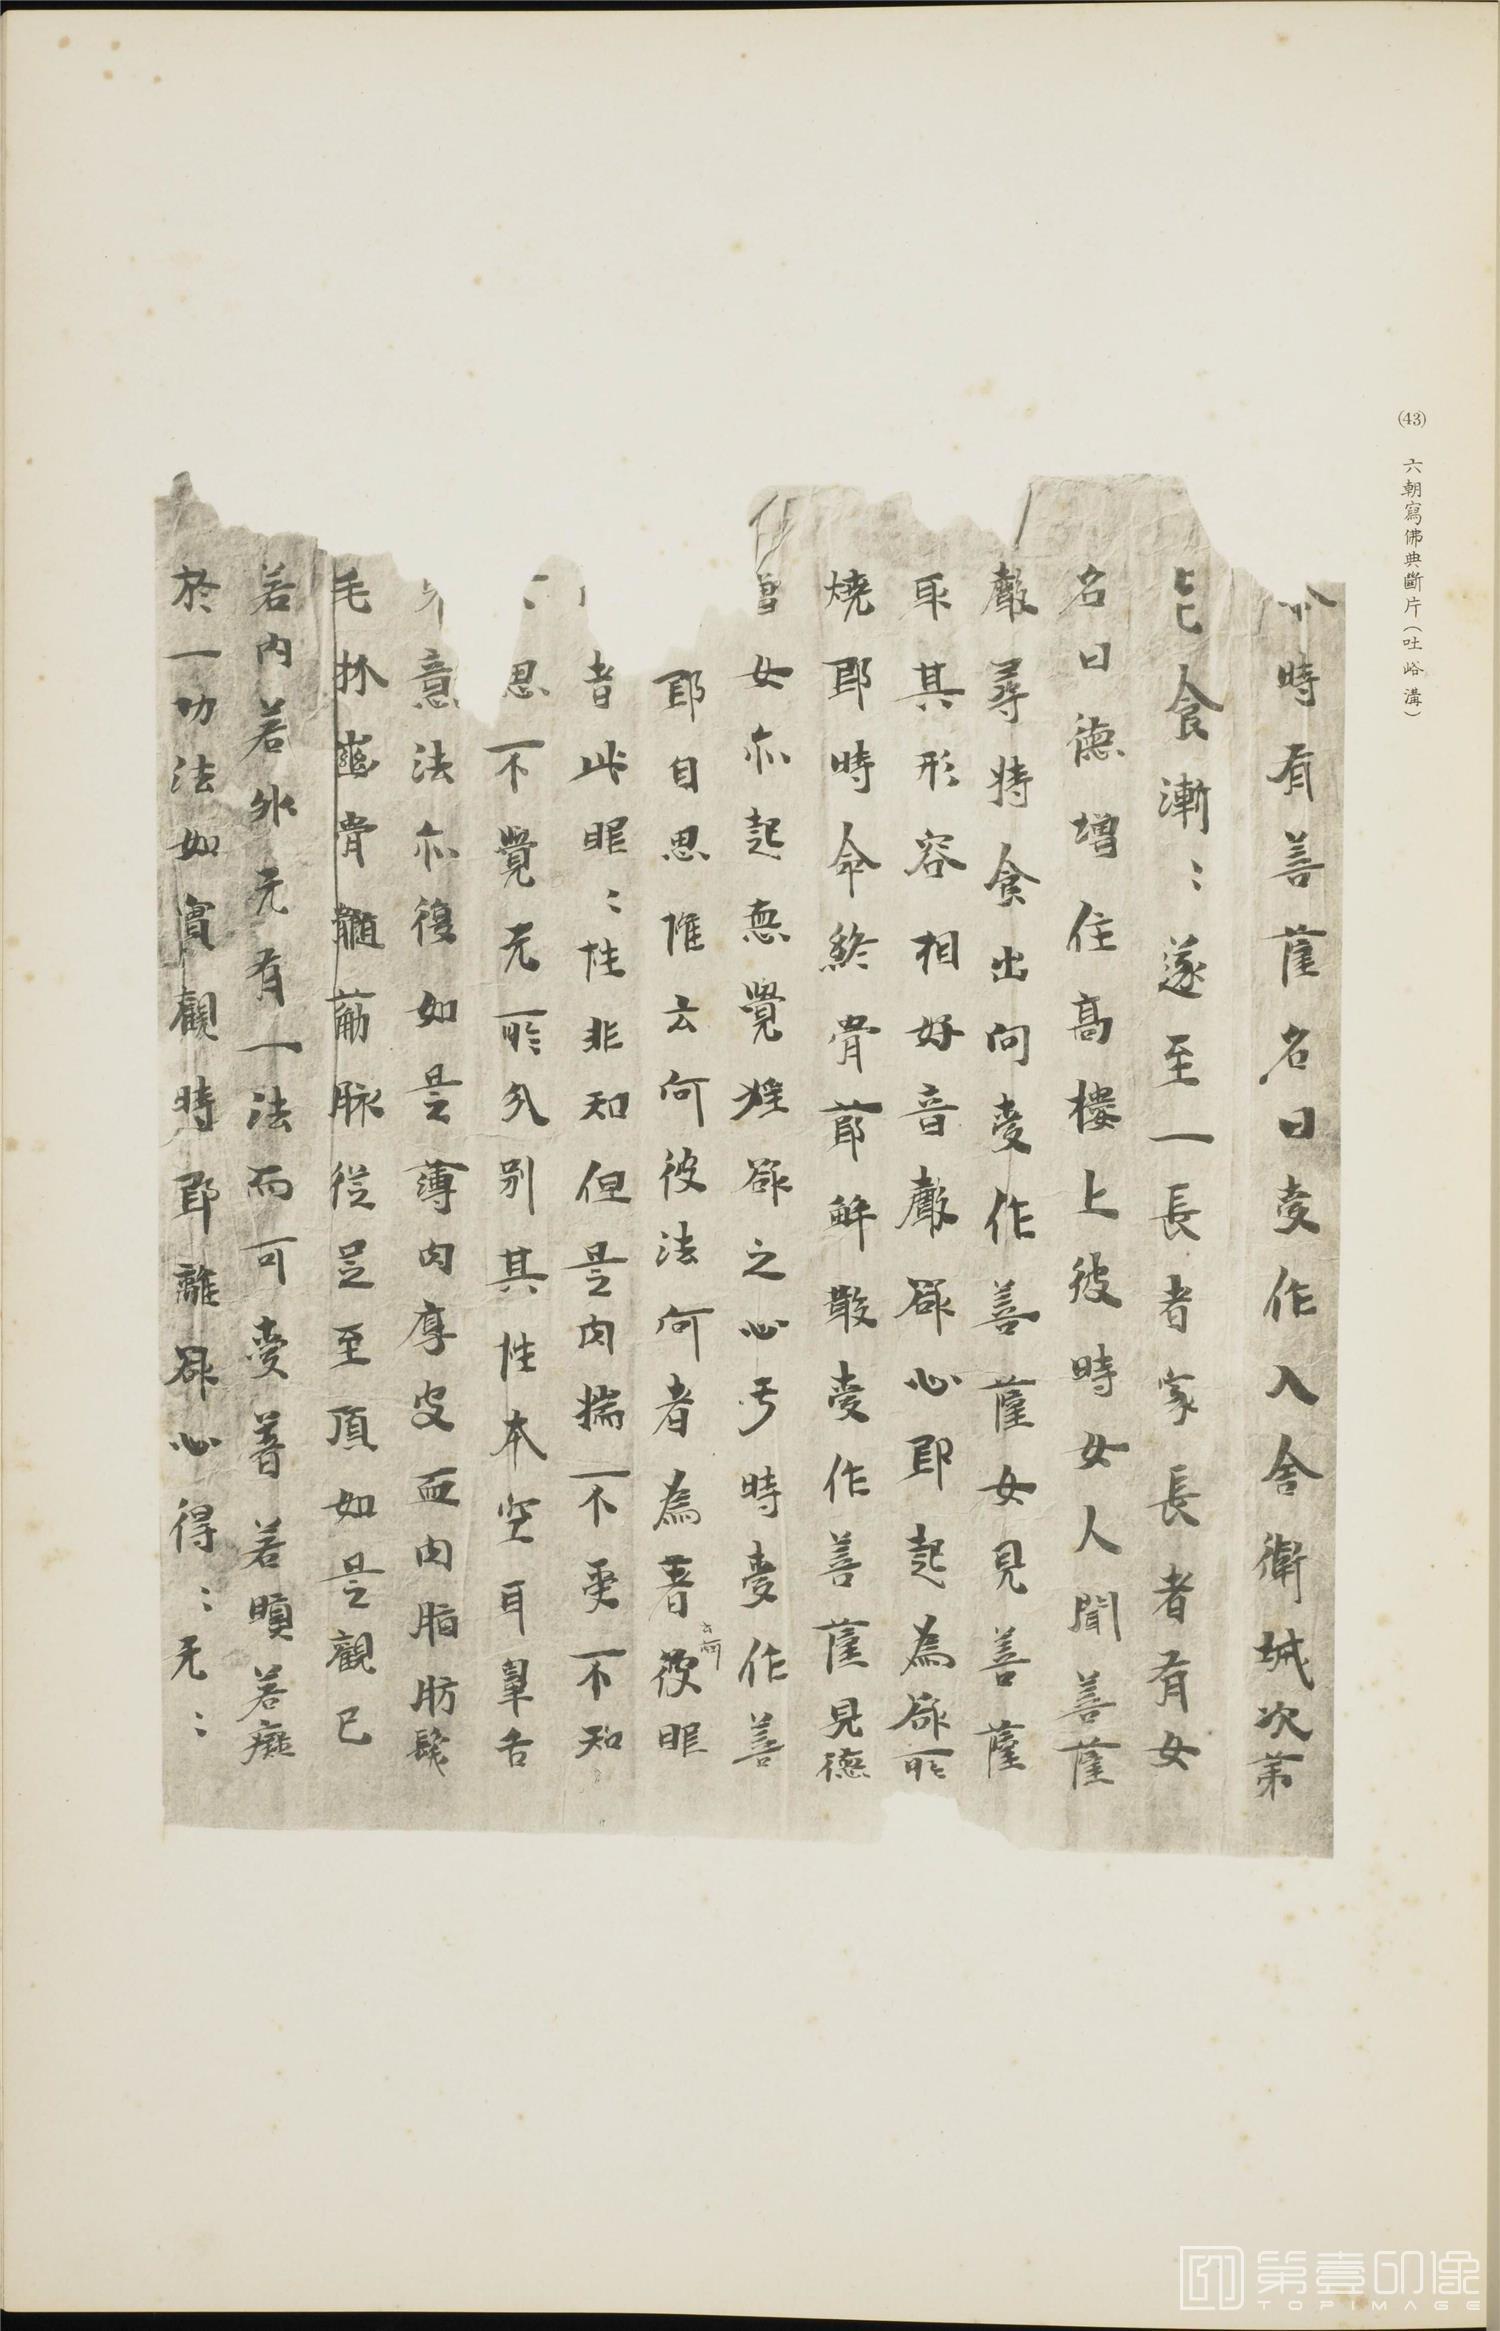 (43) 六朝寫佛典斷片(吐峪溝)
尒時有善薩名曰愛作入舍衛城次第
乞食漸〻遂至一長者家長者有女
名曰德增住高樓上彼時女人聞善薩
聲尋持食出向愛作善薩女見善薩
取其形容相好音聲欲心即起為欲所
燒即時命終骨節解散愛作善薩見德
增女亦起惡覺婬欲之心于時愛作善
即自思惟云何彼法何者為著彼眼
云何
者此眼〻性非知但是肉揣不愛不知
思不覺无所分別其性本空耳鼻舌
身意法亦復如是薄肉厚皮血肉脂肪髮
毛抓齒骨髓筋脉從足至頂如是觀已
若內若外无有一法而可愛著若瞋若癡
於一切法如實觀時即離欲心得〻无〻
第壹印像
TOPIMAGE